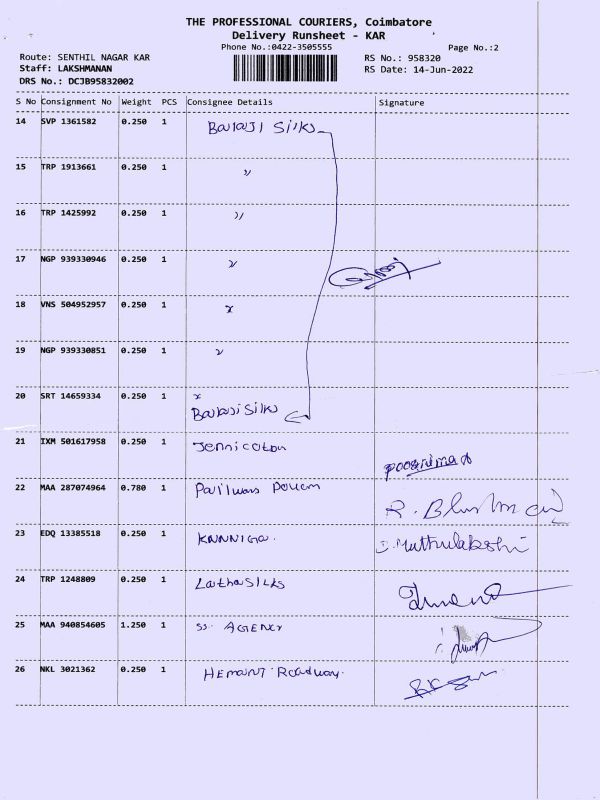 THE PROFESSIONAL COURIERS, Coimbatore
Delivery Runsheet - KAR
Phone No.:0422-3505555
Page No.:2
Route: SENTHIL NAGAR KAR
RS No.: 958320
Staff: LAKSHMANAN
RS Date: 14-Jun-2022
DRS No.: DCJB95832002
S No Consignment No Weight PCS Consignee Details Signature
14 SVP 1361582 0.250 1 Balaji Silks
15 TRP 1913661 0.250 1 "
16 TRP 1425992 0.250 1 "
17 NGP 939330946 0.250 1 "
18 VNS 504952957 0.250 1 "
19 NGP 939330851 0.250 1 "
20 SRT 14659334 0.250 1 "
Balaji Silks
21 IXM 501617958 0.250 1 Jennicoton
22 MAA 287074964 0.780 1
23 EDQ 13385518 0.250 1 KANNIGA. Muthulakshi
24 TRP 1248809 0.250 1 Latha Silks
25 MAA 940854605 1.250 1 SS. AGENCY
26 NKL 3021362 0.250 1 Hemant Roadway.